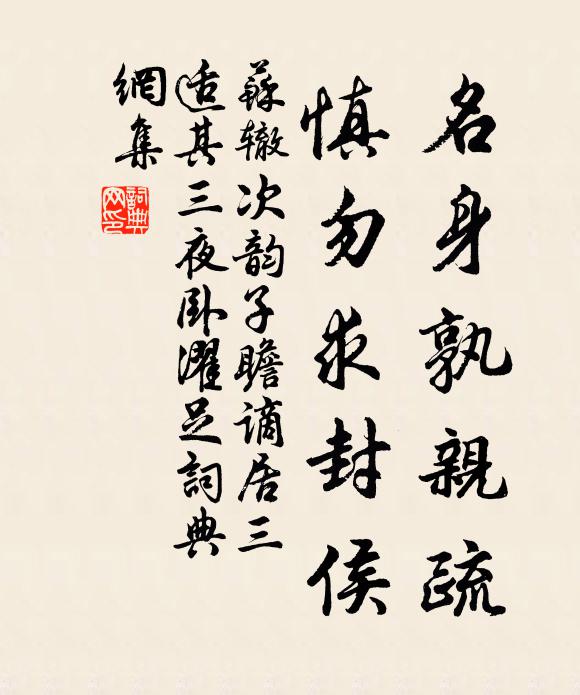 名身孰親疏
慎勿求封侯
蘇辙次韵子瞻谪居三
适其三夜卧濯足詞典
網集
詞典网印